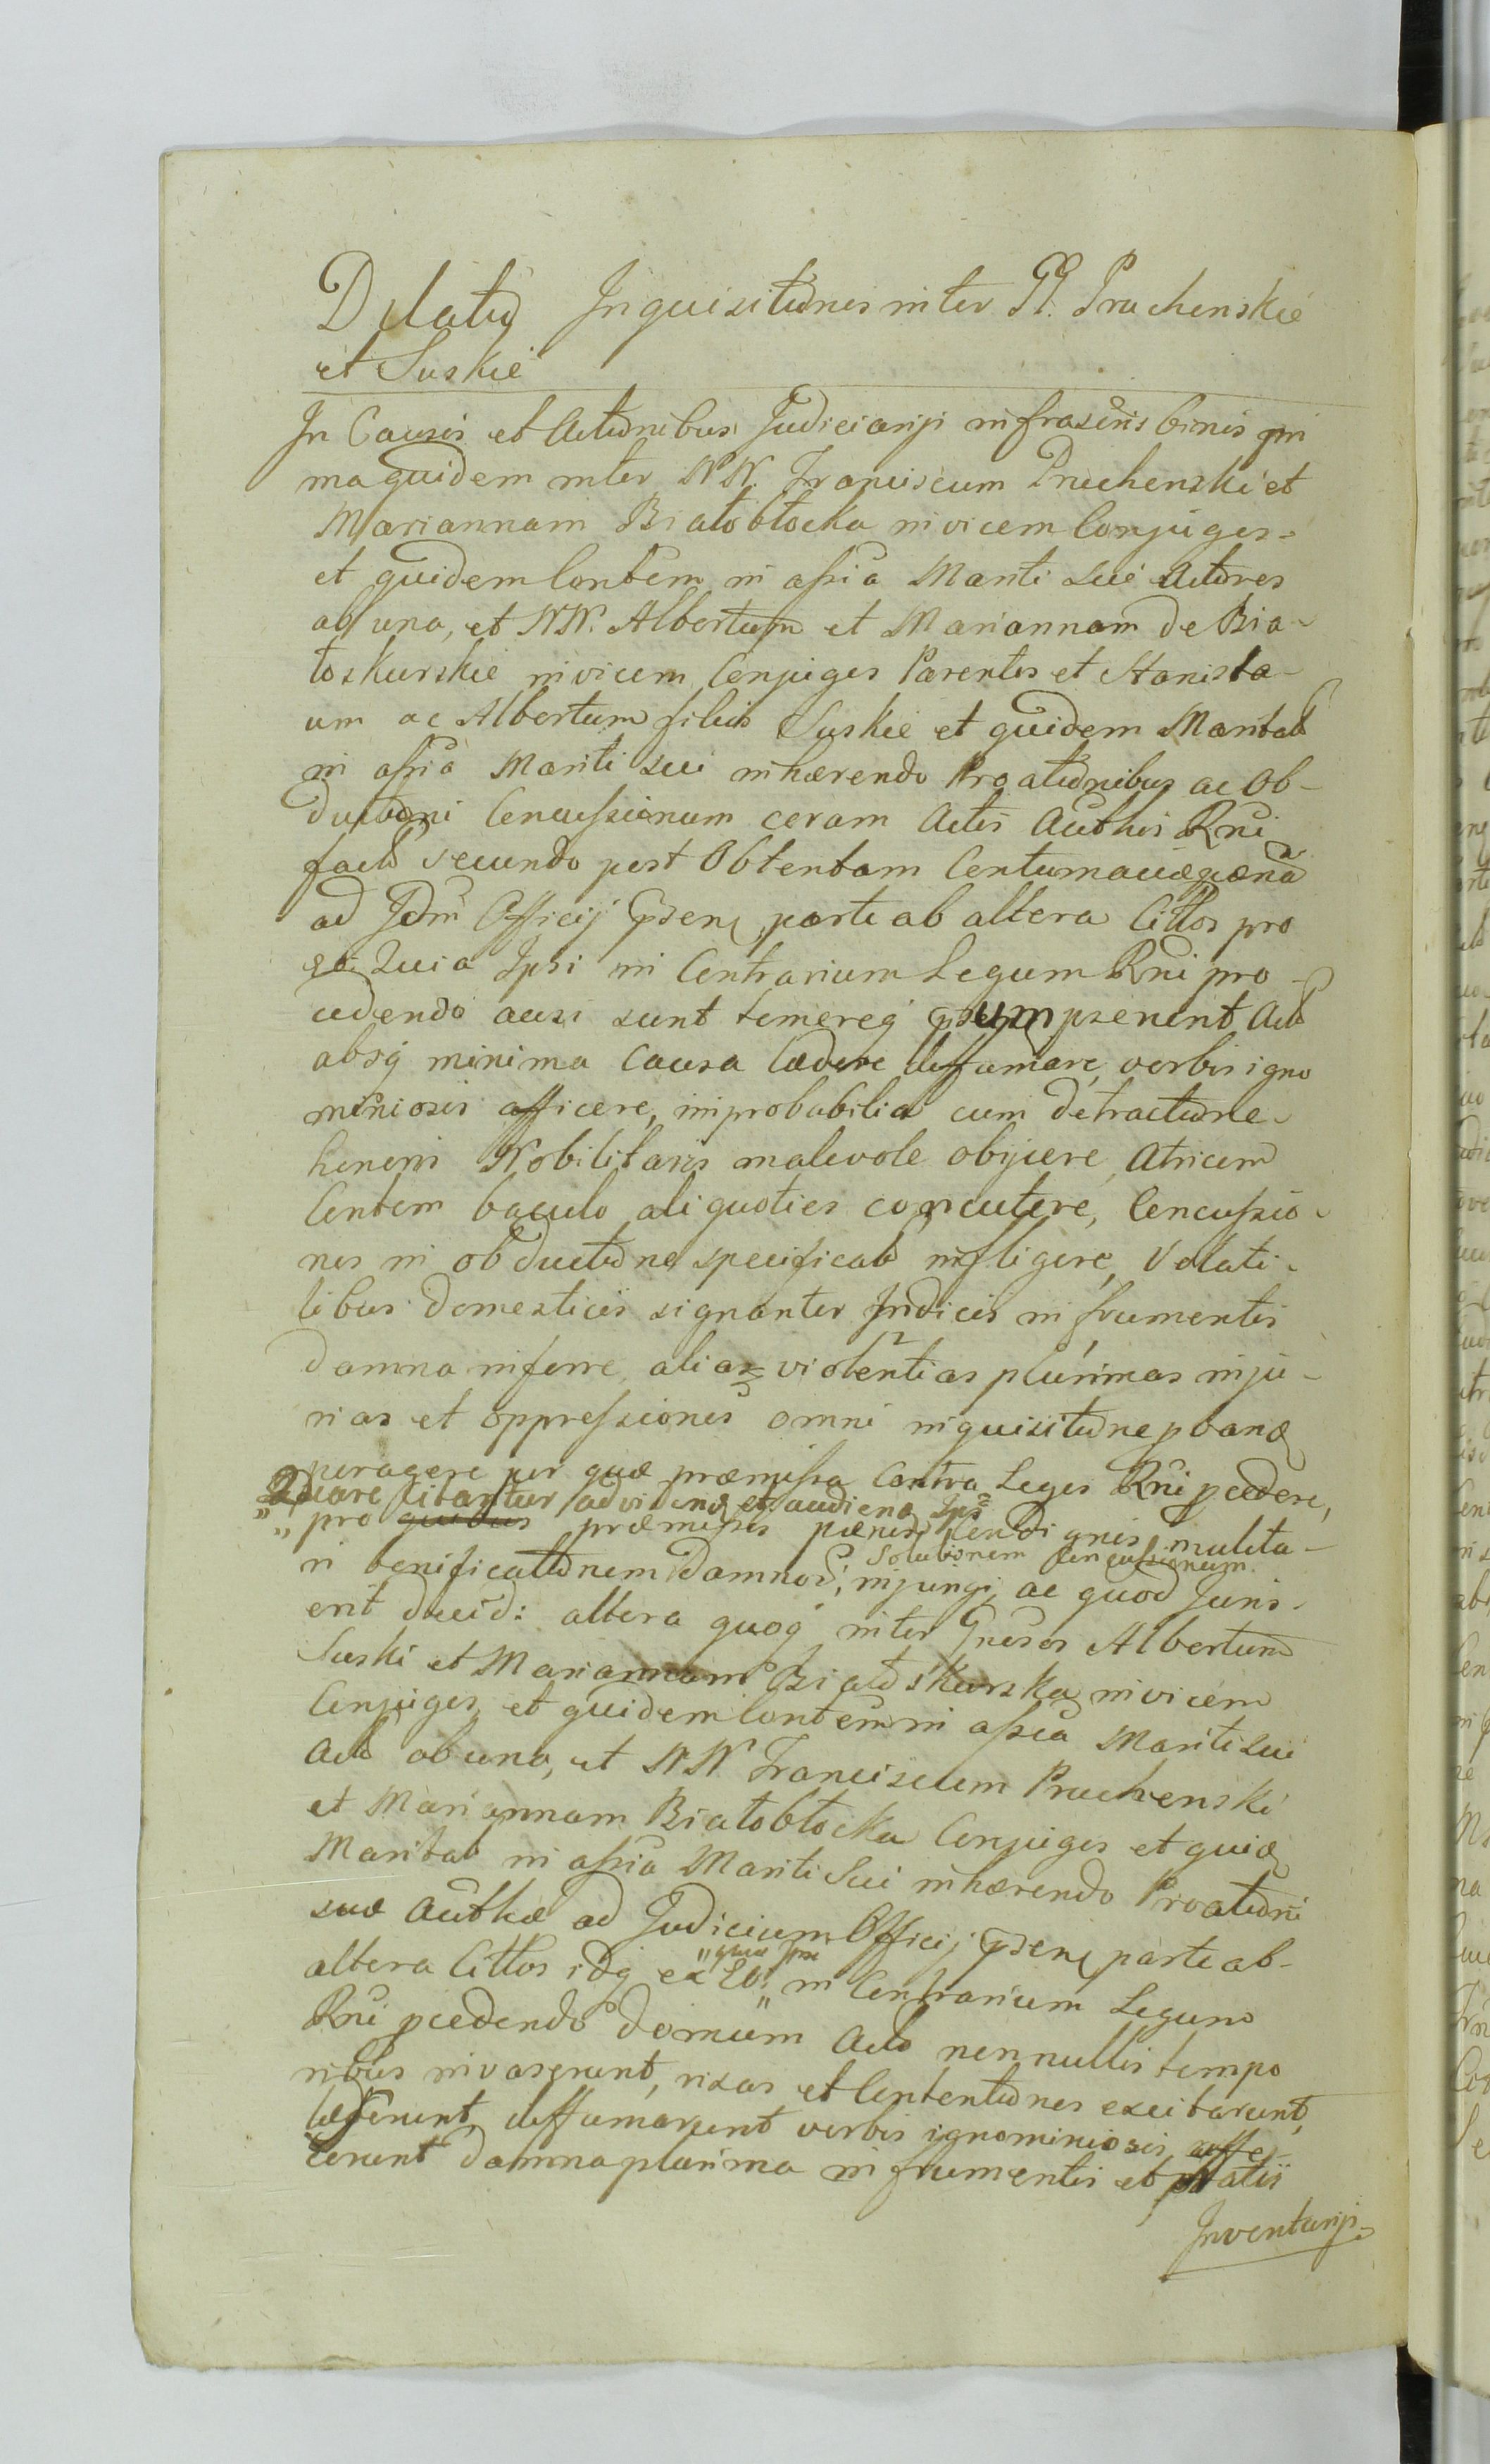 Dilatio Inquisitionis inter GG. Pruchenskie
et Suskie
In Causis et Actionibus Judiciarij infrascris binis pri
ma quidem inter NN. Franciscum Pruchenski et
Mariannam Białobłocka invicem Conjuges
et quidem Contem in assia Mariti sui Actores
ab una, et NN. Albertum et Mariannam de Bia-
łoskurskie invicem Conjuges Parentes et Stanisla-
um ac Albertum filios Suskie et quidem Maritab
in assia Mariti sui inhærendo Proationibus ac Ob-
ductioni Concussionum coram Actis Authcis Rni
facto secundo post Obtentam Contumaciæ pæna
ad Jdm Officij psens parte ab altera Cittos pro
eo. Quia Ipsi in Contrarium Legum Rni pro-
cedendo ausi sunt temereq psumpserint Acto
absq minima Causa lædere deffamare, verbis igno
miniosis afficere, improbabilia cum detractione
honoris Nobilitaris malevole objicere, Atricem
Contem baculo aliquoties concutere, Concussio-
nes in obductione specificato infligere, Volati-
libus domesticis signanter Indicis in frumentis
damna inferre, alias violentias plurimas inju-
rias et oppressiones omni inquisitione pband
peragere per quæ præmissa Contra Leges Rni pcedere,
Quare Citantur ad vidend et audiend Ips
pro quibus præmissis pænis Condignis mulcta-
ri bonificationem Damnor, Solutionem Concussionum injungi, ac quod Juris
erit decid: altera quoq inter Gnesos Albertum
Suski et Mariannam Białoskurska invicem
Conjuges et quidem Contem in assia Mariti sui
Acto ab una, et NN Franciscum Pruchenski
et Mariannam Białobłocka Conjuges et quid
Maritab in assia Mariti Sui inhærendo Proationi
suæ Authcæ ad Judicium Officij psens parte ab
altera Cittos idq ex Eo: quia ipsi in Contrarium Legum
Rni pcedendo domum Acto nonnullis tempo
ribus invaserunt, rixas et Contentiones excitarunt,
læserunt, deffamarunt verbis ignominiosis, affe-
cerunt damna plurima in frumentis et pratis
Inventarij